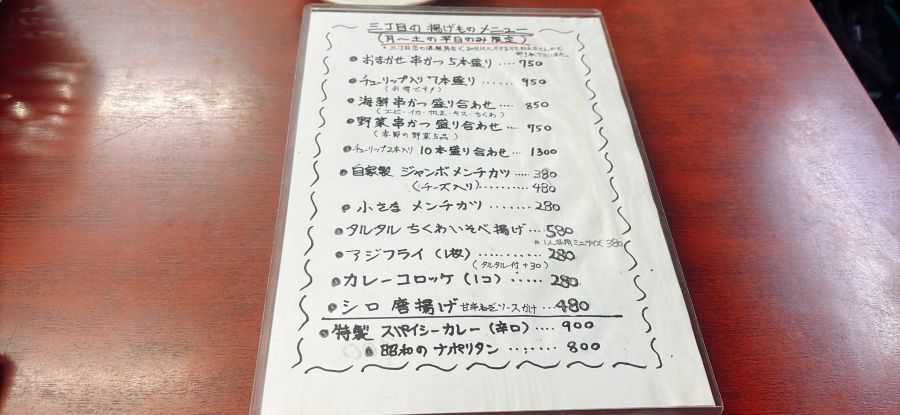 三丁目の 揚げものメニュー
(月〜土の平日のみ限定)
おまかせ 串かつ 5本盛り … 750
チューリップ入り 7本盛り … 950
(お得です!)
海鮮串かつ 盛り合わせ … 850
(エビ・イカ・帆立・キス・ちくわ)
野菜串かつ 盛り合わせ …. 750
(季節の野菜5品)
チューリップ2本入り 10本盛り合わせ … 1300
自家製 ジャンボメンチカツ ..... 380
(チーズ入り)......... 480
小さな メンチカツ ....... 280
タルタル ちくわいそべ揚げ ... 580
※1人様用ミニサイズ 380
アジフライ (1枚) ........... 280
(タルタル付+30)
カレーコロッケ (1コ) ..... 280
シロ 唐揚げ 甘辛ねぎソースかけ ... 480
特製 スパイシーカレー (辛口) .... 900
昭和のナポリタン ....... 800